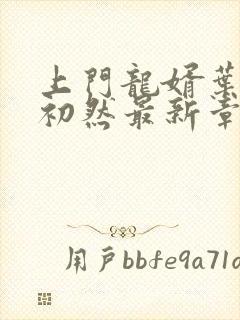 上門龍婿葉
初然最新章
用戶bbfe9a71d